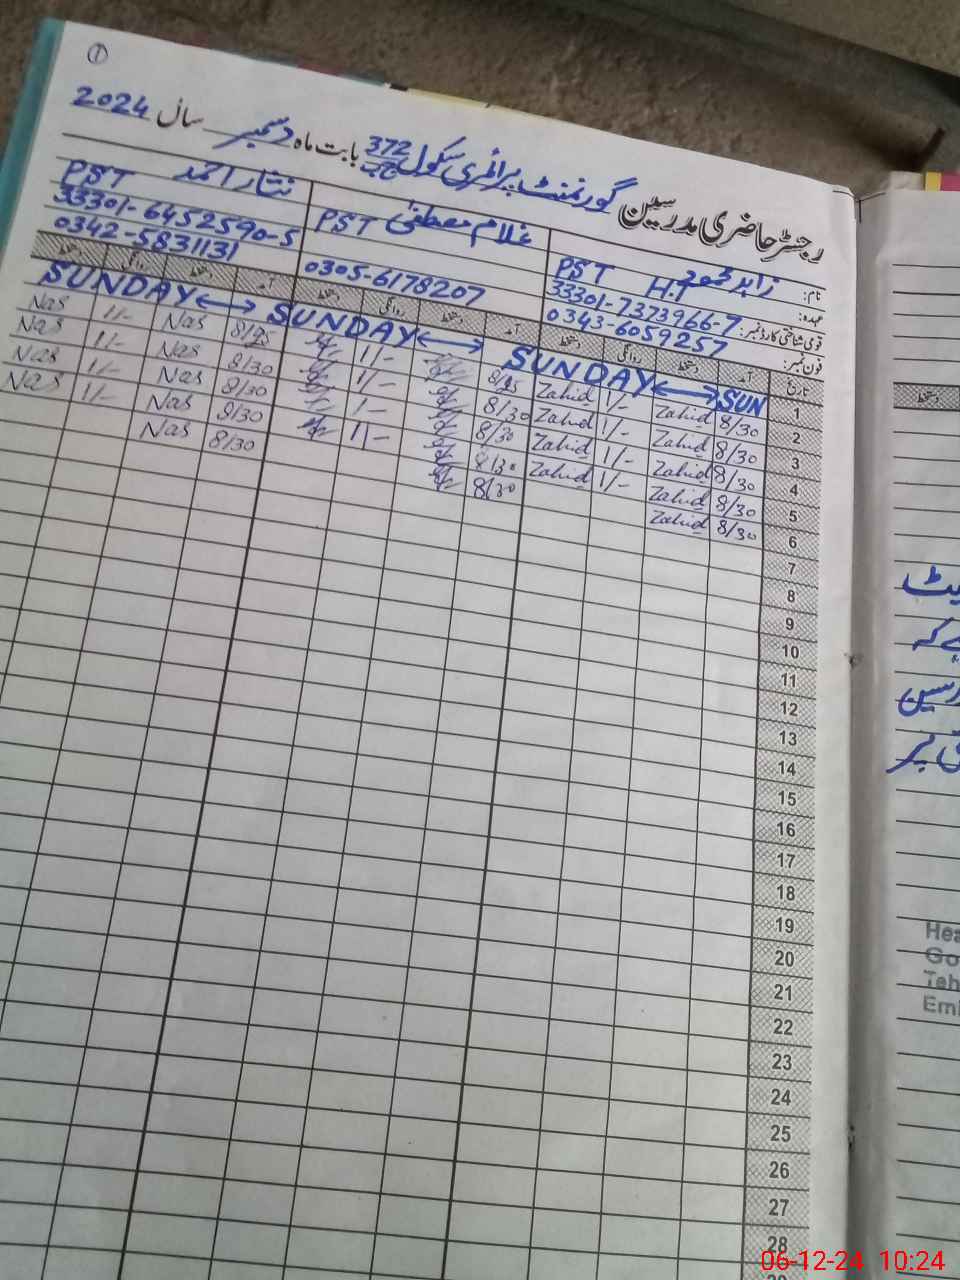 ①
رجسٹر حاضری مدرسین گورنمنٹ پرائمری سکول 372 بابت ماہ دسمبر سال 2024
نام: زاہد محمود
غلام مصطفیٰ PST
نثار احمد PST
عہدہ: PST H.T
قومی شناختی کارڈ نمبر: 33301-7373966-7
33301-6452590-5
فون نمبر: 0343-6059257
0305-6178207
0342-5831131
تاریخ آمد دستخط روانگی دستخط آمد دستخط روانگی دستخط آمد دستخط روانگی دستخط
1 SUN SUNDAY SUNDAY SUNDAY
2 8/30 Zahid 1/- Zahid 8/25 1/- 8/25 Nas 1/- Nas
3 8/30 Zahid 1/- Zahid 8/30 1/- 8/30 Nas 1/- Nas
4 8/30 Zahid 1/- Zahid 8/30 1/- 8/30 Nas 1/- Nas
5 8/30 Zahid 1/- Zahid 8/30 1/- 8/30 Nas 1/- Nas
6 8/30 Zahid 8/30 8/30 Nas
7
8
9
10
11
12
13
14
15
16
17
18
19
20
21
22
23
24
25
26
27
28
دستخط
Hea
Go
Teh
Emi
06-12-24 10:24